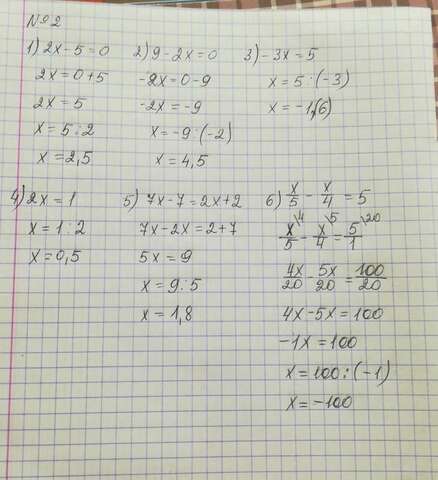 №2
1) 2x-5=0
2x=0+5
2x=5
x=5:2
x=2,5
2) 9-2x=0
-2x=0-9
-2x=-9
x=-9:(-2)
x=4,5
3) -3x=5
x=5:(-3)
x=-1,(6)
4) 2x=1
x=1:2
x=0,5
5) 7x-7=2x+2
7x-2x=2+7
5x=9
x=9:5
x=1,8
6) x/5 - x/4 = 5
x\4/5 - x\5/4 = 5\20/1
4x/20 - 5x/20 = 100/20
4x-5x=100
-1x=100
x=100:(-1)
x=-100